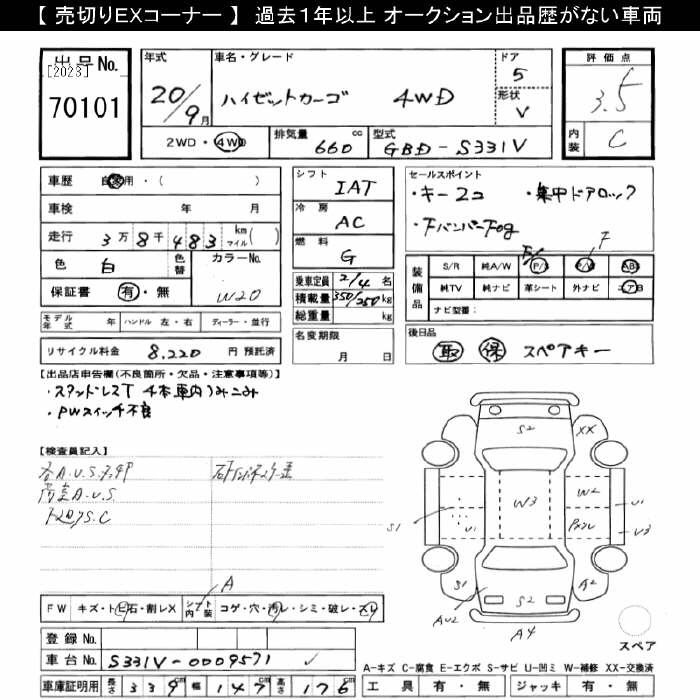 【 売切りEXコーナー 】 過去1年以上 オークション出品歴がない車両
出品 No.
[2023]
70101
年式
20/9月
車名・グレード
ハイゼットカーゴ 4WD
ドア
5
形状
V
評価点
3.5
内装
C
2WD・4WD
排気量 660 cc
型式 GBD-S331V
車歴 自家用・( )
車検 年 月
走行 3万8千483 km マイル( )
色 白
色替
カラーNo.
W20
保証書 有・無
モデル年式 年
ハンドル 左・右
ディーラー・並行
リサイクル料金 8,220 円 預託済
シフト
IAT
冷房
AC
燃料
G
乗車定員 2/4 名
積載量 350/250 kg
総重量 kg
名変期限
月 日
セールスポイント
・キー2コ ・集中ドアロック
・FバンパーFog
F/ F
装備品
S/R 純A/W P/S P/W AB
純TV 純ナビ 革シート 外ナビ エアB
ナビ型番:
後日品
取 保 スペアキー
【出品店申告欄(不良箇所・欠品・注意事項等)】
・スタッドレスT 4本車内つみこみ
・PWスイッチ不良
【検査員記入】
各A.U.S.
A.U.S.
下廻りS.C
FW キズ・トビ石・割レX
シート内装 コゲ・穴・汚レ・シミ・破レ・スレ
A
登録 No.
車台 No. S331V-0009571 ✓
車庫証明用 長さ 339 cm 幅 147 cm 高さ 176 cm
S2
XX
W3
W2
S1
U1
U1
U3
S1
AU2
S2
A2
A4
スペア
A-キズ C-腐食 E-エクボ S-サビ U-凹ミ W-補修 XX-交換済
工具 有・無 ジャッキ 有・無